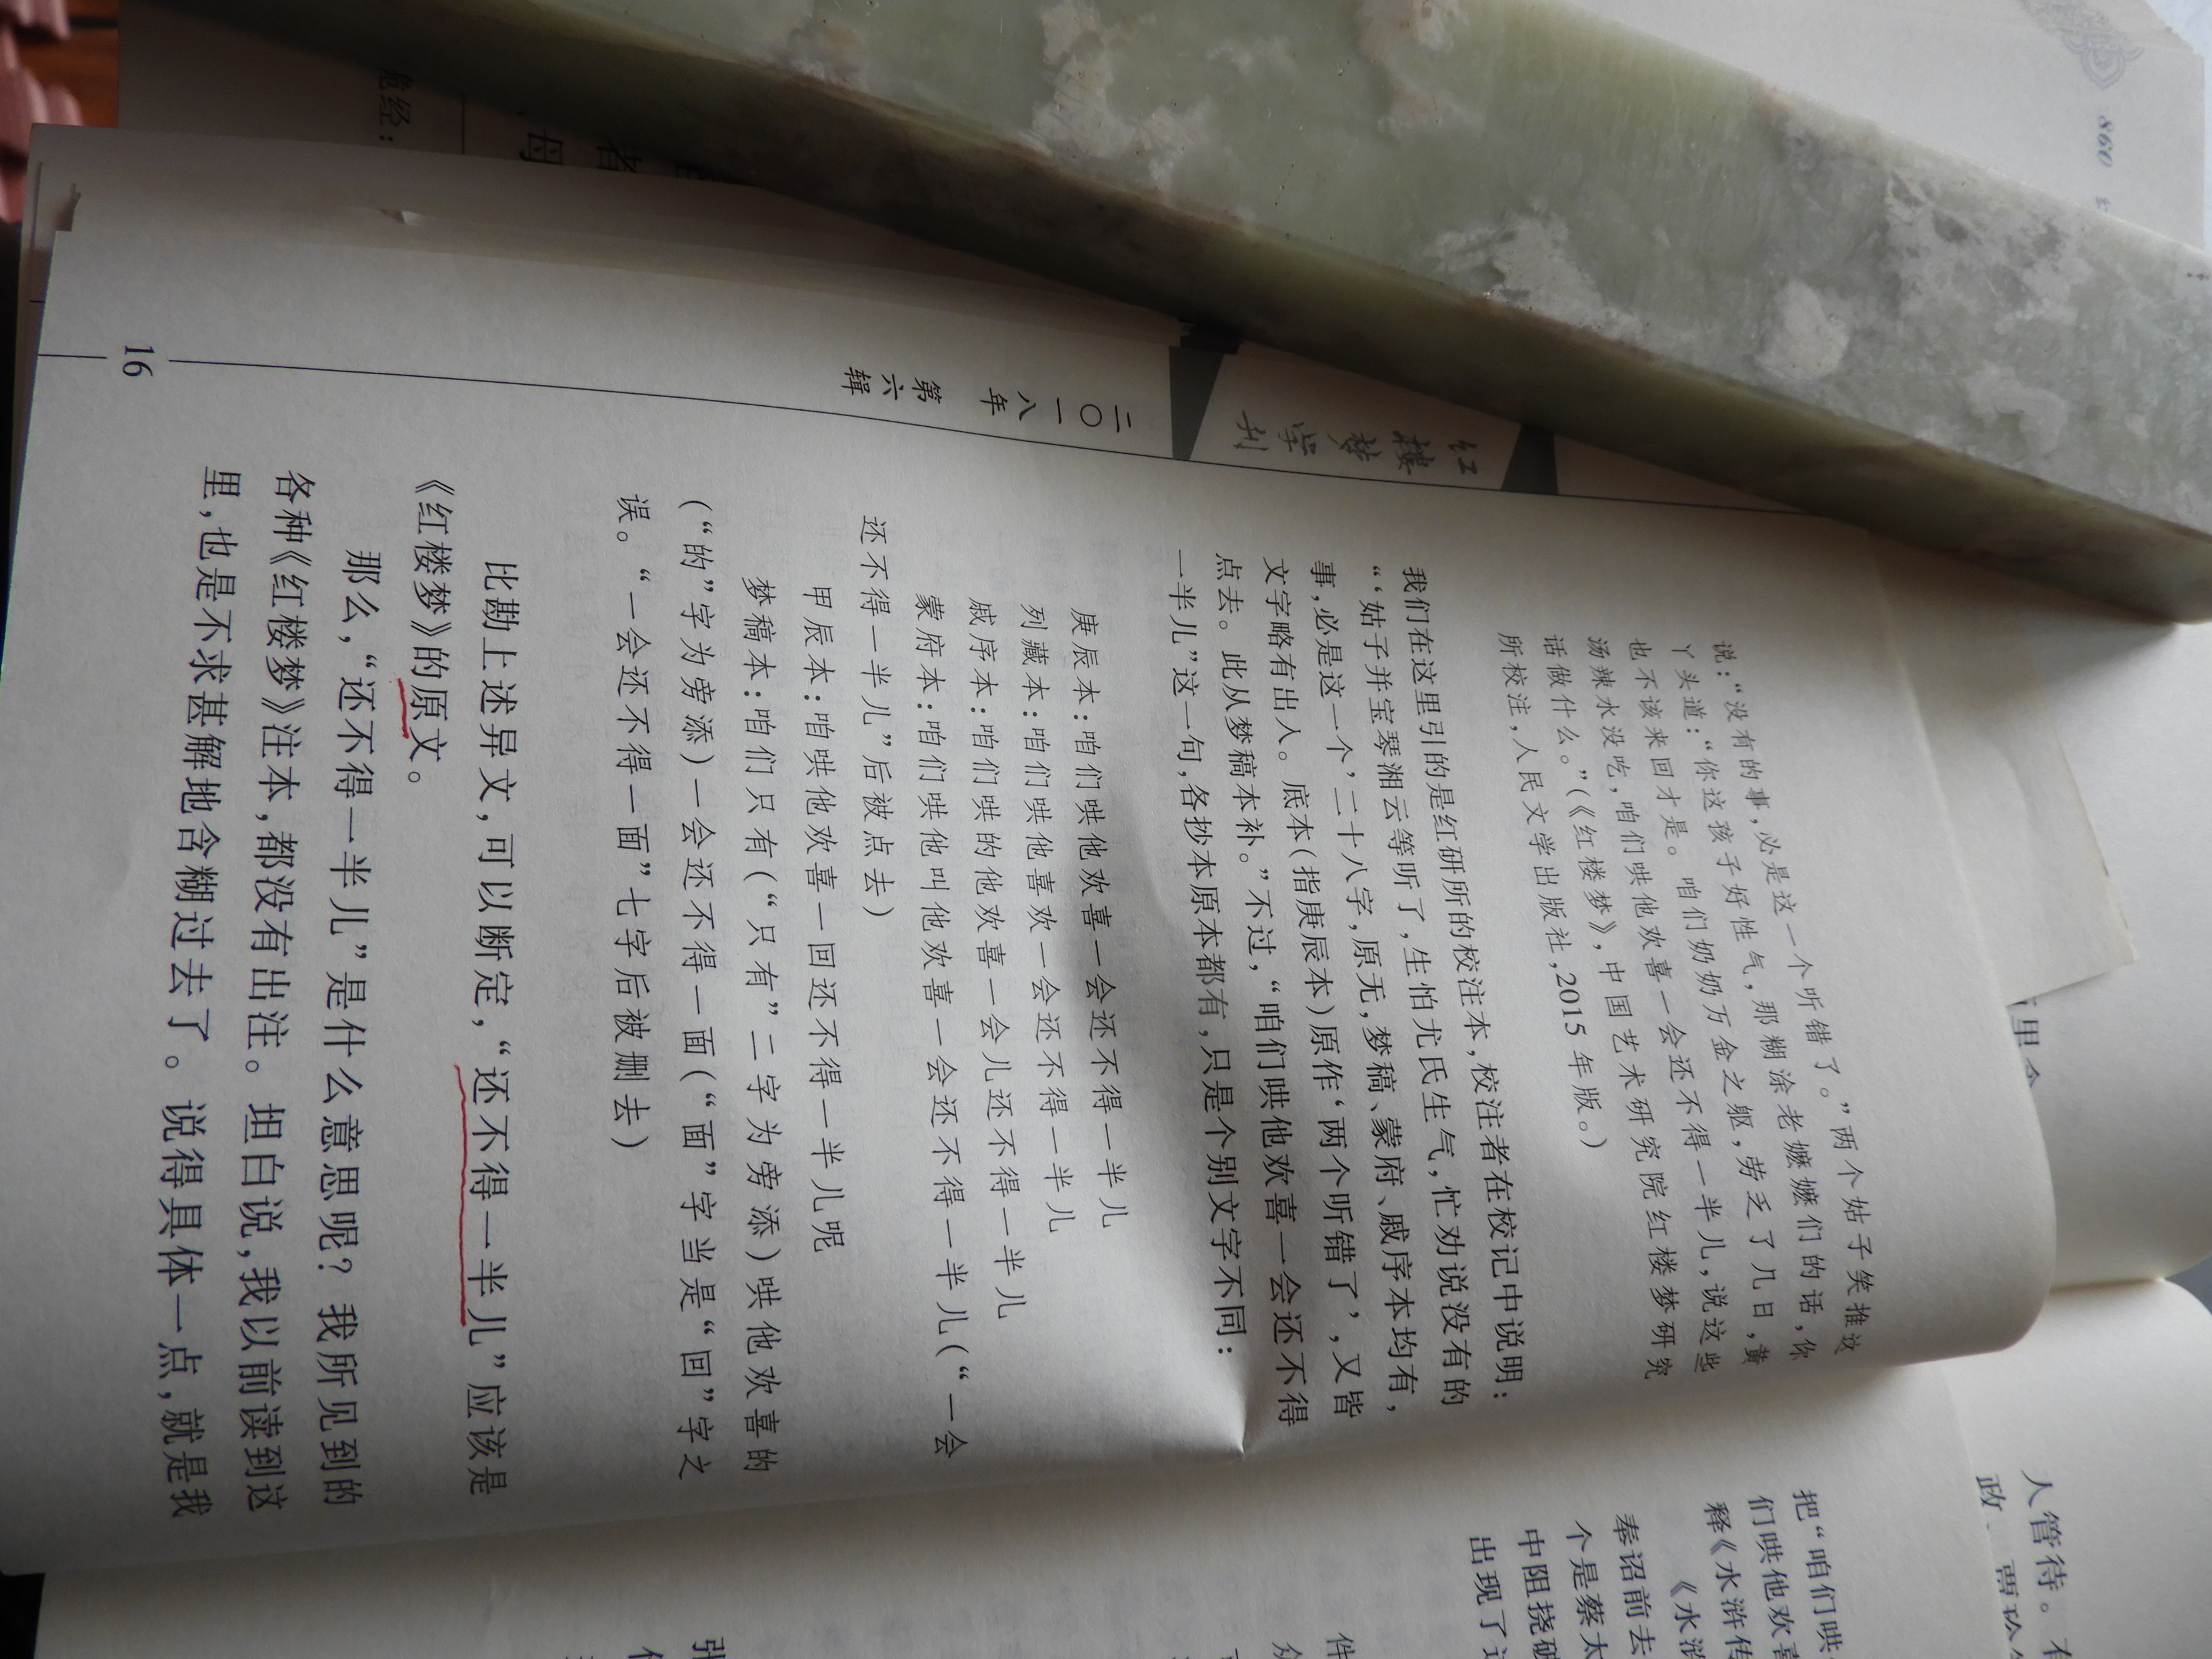 红楼梦学刊
二〇一八年
第六辑
说：“没有的事，必是这一个听错了。”两个姑子笑推这
丫头道：“你这孩子好性气，那糊涂老嬷嬷们的话，你
也不该来回才是。咱们奶奶万金之躯，劳乏了几日，黄
汤辣水没吃，咱们哄他欢喜一会还不得一半儿，说这些
话做什么。”（《红楼梦》，中国艺术研究院红楼梦研究
所校注，人民文学出版社，2015年版。）
我们在这里引的是红研所的校注本，校注者在校记中说明：
“‘姑子并宝琴湘云等听了，生怕尤氏生气，忙劝说没有的
事，必是这一个’二十八字，原无，梦稿、蒙府、戚序本均有，
文字略有出入。底本（指庚辰本）原作‘两个听错了’，又皆
点去。此从梦稿本补。”不过，“咱们哄他欢喜一会还不得
一半儿”这一句，各抄本原本都有，只是个别文字不同：
庚辰本：咱们哄他欢喜一会还不得一半儿
列藏本：咱们哄他喜欢一会还不得一半儿
戚序本：咱们哄的他欢喜一会儿还不得一半儿
蒙府本：咱们哄他叫他欢喜一会还不得一半儿（“一会
还不得一半儿”后被点去）
甲辰本：咱哄他欢喜一回还不得一半儿呢
梦稿本：咱们只有（“只有”二字为旁添）哄他欢喜的
（“的”字为旁添）一会还不得一面（“面”字当是“回”字之
误。“一会还不得一面”七字后被删去）
比勘上述异文，可以断定，“还不得一半儿”应该是
《红楼梦》的原文。
那么，“还不得一半儿”是什么意思呢？我所见到的
各种《红楼梦》注本，都没有出注。坦白说，我以前读到这
里，也是不求甚解地含糊过去了。说得具体一点，就是我
16
860
经：
母
者
人管待。
政
把“咱们哄
们哄他欢喜
释《水浒传
《水浒
奉诏前去
个是蔡太
中阻挠破
出现了这
件
张